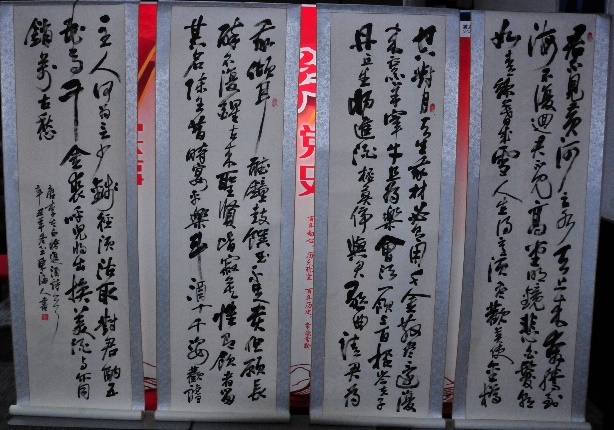 君不見黃河之水天上来奔流到
海不復迴君不見高堂明鏡悲白髮朝
如青絲暮成雪人生得意須盡歡莫使金樽
空對月天生我材必有用千金散盡還復
来烹羊宰牛且為樂會須一飲三百杯岑夫子
丹丘生將進酒杯莫停與君歌一曲請君為
我傾耳聽鐘鼓饌玉不足貴但願長
醉不復醒古来聖賢皆寂寞惟有飲者留
其名陳王昔時宴平樂斗酒十千恣歡謔
主人何為言少錢徑須沽取對君酌五
花馬千金裘呼兒將出換美酒與爾同
銷萬古愁
唐李白將進酒詩
辛丑年
党史
百年初心 历久弥坚 百年历史